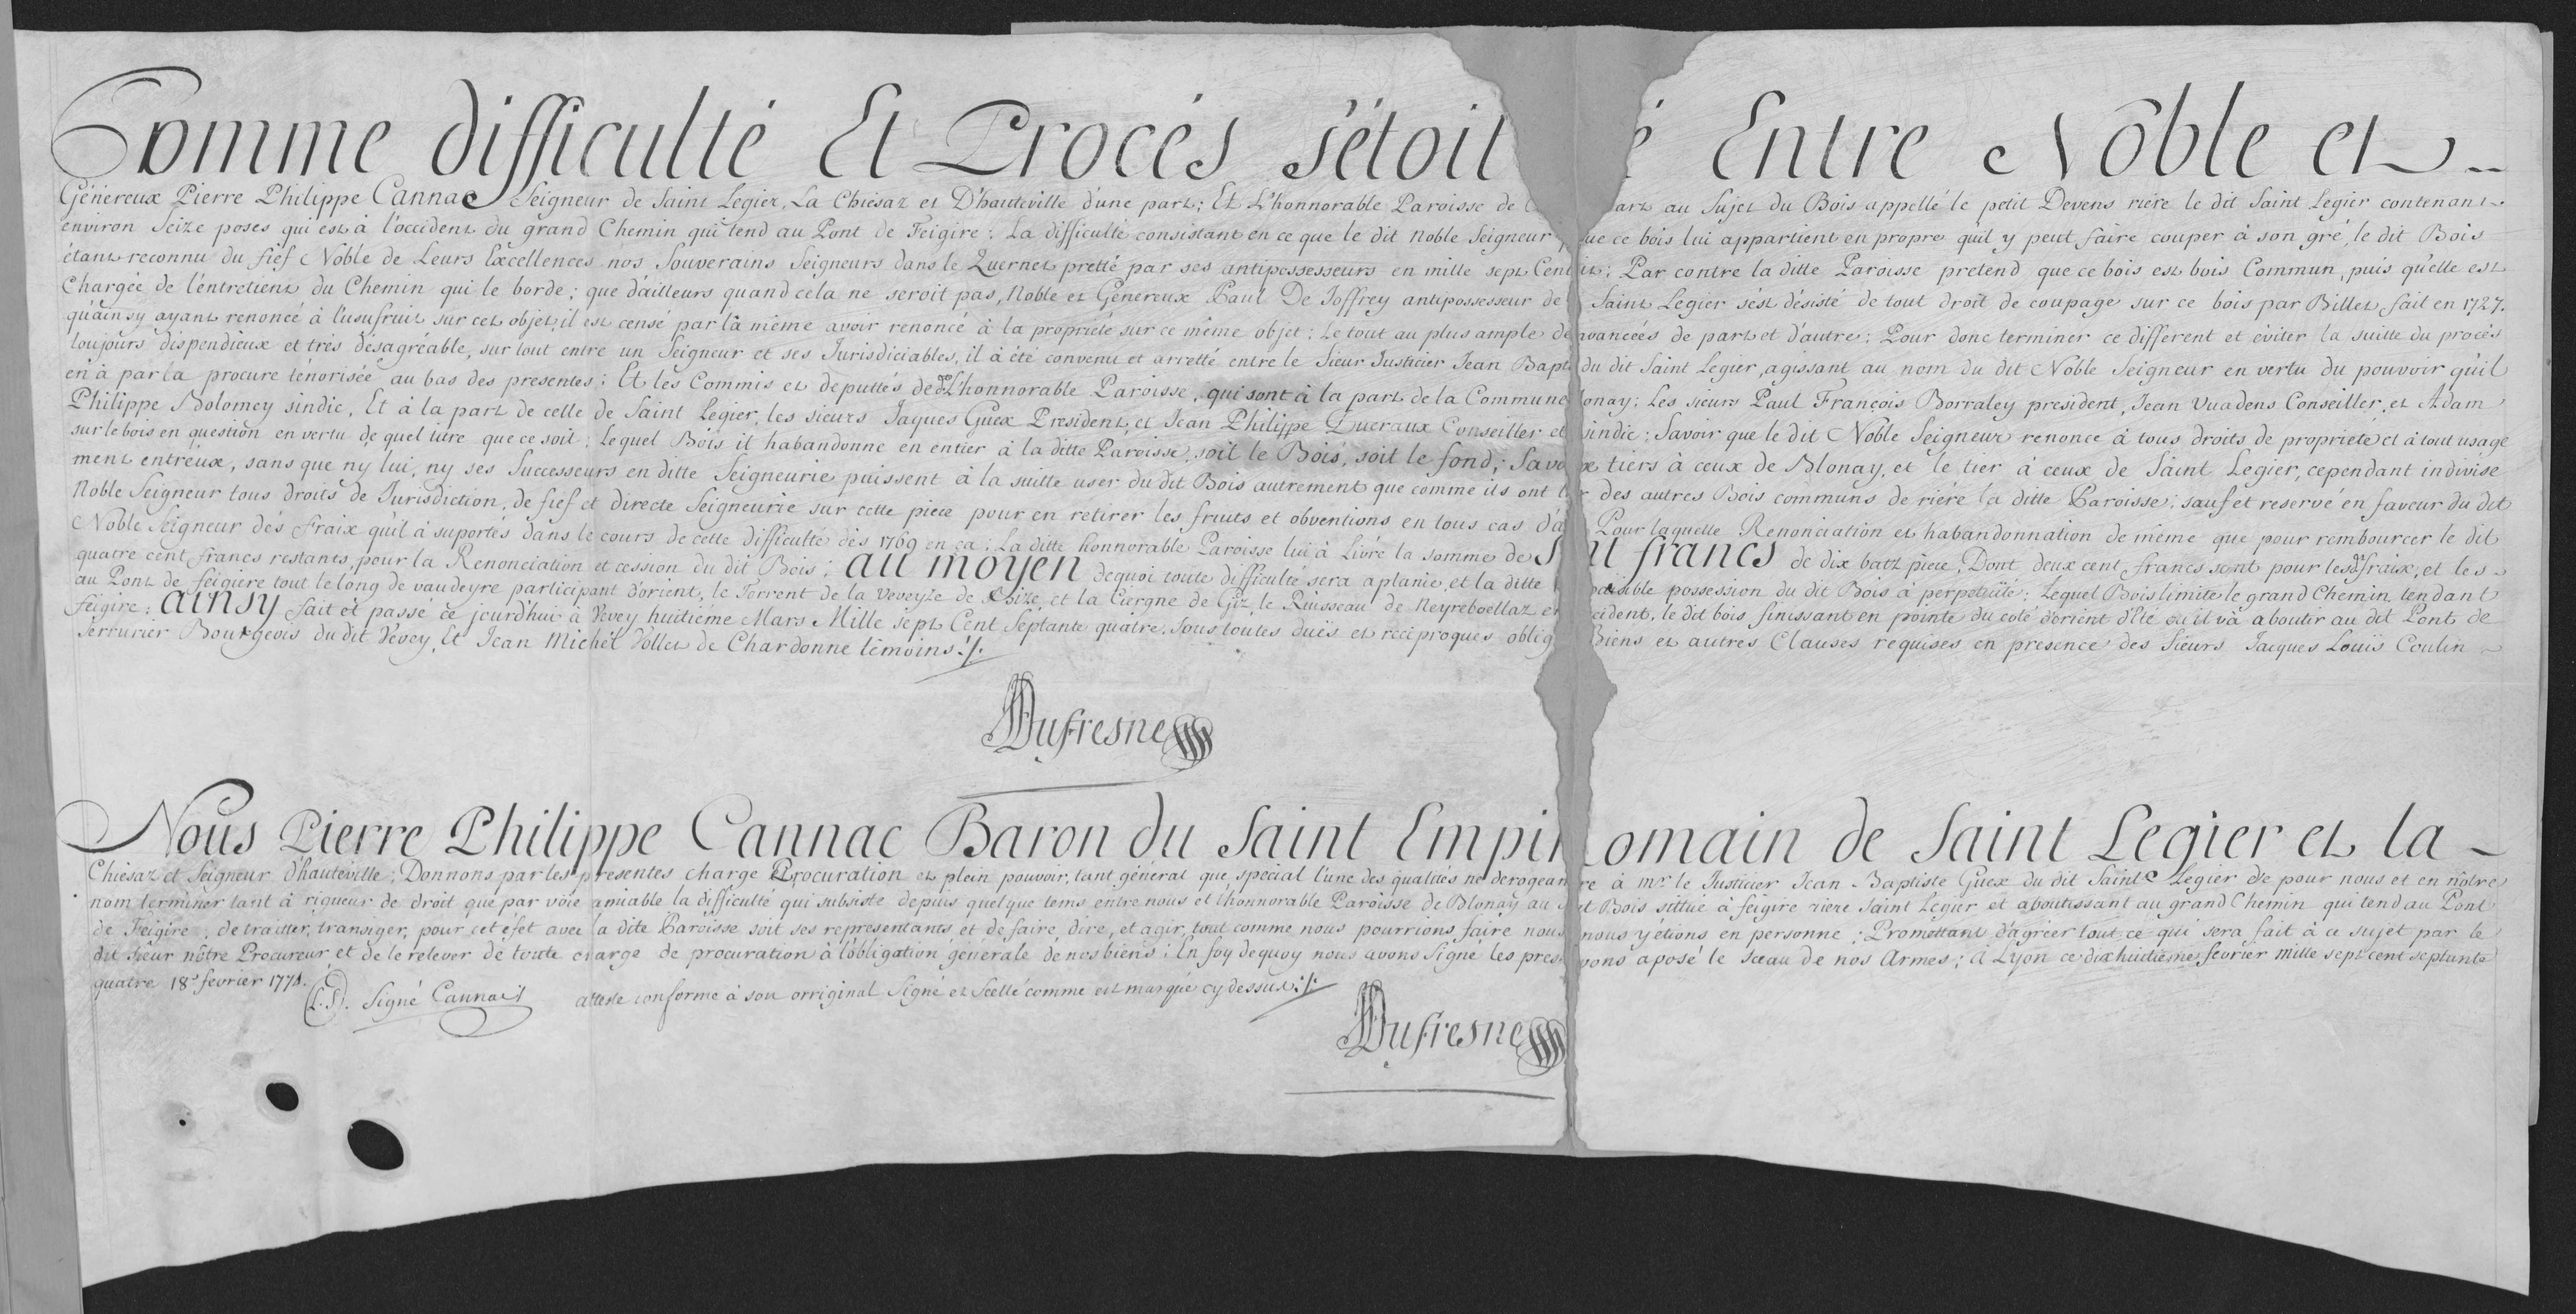 Comme difficulté Et Procés s'étoit é Entre Noble et
Généreux Pierre Philippe Cannac Seigneur de Saint Legier, La Chiesaz et D'hauteville d'une part; Et L'honnorable Paroisse de art au Sujet du Bois appellé le petit Devens riére le dit Saint Legier contenant
environ Seize poses qui est à l'occident du grand Chemin qui tend au Pont de Feigire: La difficulté consistant en ce que le dit Noble Seigneur que ce bois lui appartient en propre qu'il y peut faire couper à son gré, le dit Bois
étant reconnu du fief Noble de Leurs Excellences nos Souverains Seigneurs dans le Quernet pretté par ses antipossesseurs en mille sept Cent it: Par contre la ditte Paroisse pretend que ce bois est bois Commun, puis qu'elle est
Chargée de l'éntretient du Chemin qui le borde; que dailleurs quand cela ne seroit pas, Noble et Généreux Paul De Joffrey antipossesseur de Saint Legier s'est désisté de tout droit de coupage sur ce bois par Billet fait en 1727.
qu'ainsy ayant renoncé à l'usufruit sur cet objet, il est censé par là même avoir renoncé à la propriété sur ce même objet: Le tout au plus ample de avancéés de part et d'autre: Pour donc terminer ce different et éviter la suitte du procés
toujours dispendieux et trés désagréable, sur tout entre un Seigneur et ses Jurisdiciables, il à été convenu et arretté entre le Sieur Justicier Jean Bapt du dit Saint Legier, agissant au nom du dit Noble Seigneur en vertu du pouvoir qu'il
en à par la procure tenorisée au bas des presentes; Et les Commis et deputtés de L'honnorable Paroisse, qui sont à la part de la Commune lonay: Les sieurs Paul François Borraley president, Jean Vuadens Conseiller, et Adam
Philippe Bolomey sindic, Et à la part de celle de Saint Legier, les sieurs Jaques Guex President, et Jean Philippe Ducraux Conseiller et sindic: Savoir que le dit Noble Seigneur renonce à tous droits de proprieté et à tout usage
sur le bois en question en vertu de quel titre que ce soit; Lequel Bois il habandonne en entier à la ditte Paroisse, soit le Bois, soit le fond; Savo x tiers à ceux de Blonay, et le tier à ceux de Saint Legier, cependant indivise
ment entreux, sans que ny lui, ny ses Successeurs en ditte Seigneurie puissent à la suitte user du dit Bois autrement que comme ils ont des autres Bois communs de riére la ditte Paroisse: sauf et reservé en faveur du dit
Noble Seigneur tous droits de Jurisdiction, de fief et directe Seigneurie sur cette piéce pour en retirer les fruits et obventions en tous cas d'a Pour laquelle Renonciation et habandonnation de même que pour rembourcer le dit
Noble Seigneur dés Fraix qu'il à suportés dans le cours de cette difficulté dés 1769 en ça: La ditte honnorable Paroisse lui à Livré la somme de S nt francs de dix batz piéce, Dont deux cent francs sont pour lesd. fraix, et les
quatre cent francs restants, pour la Renonciation et cession du dit Bois: au moyen dequoi toute difficulté sera aplanie, et la ditte paisible possession du dit Bois à perpetuité: Lequel Bois limite le grand Chemin tendant
au Pont de feigiere tout le long de vaudeyre participant d'orient, le Torrent de la Veveyse de et la Ciergne de Giz, le Ruisseau de Neyreboellaz ccident, le dit bois finissant en pointe du coté d'orient d'Eté ou il và aboutir au dit Pont de
feigire: ainsy fait et passé ce jourd'hui à Vevey huitiéme Mars Mille sept Cent Septante quatre. Sous toutes duës et reciproques oblig Biens et autres Clauses requises en presence des Sieurs Jacques Louïs Coulin
Serrurier Bourgeois du dit Vevey, Et Jean Michel Vollet de Chardonne temoins ./.
Dufresne
Nous Pierre Philippe Cannac Baron du Saint Empi omain de Saint Legier et la
Chiesaz et Seigneur d'hauteville; Donnons par les presentes charge Procuration et plein pouvoir, tant général que spécial l'une des qualités ne derogeant re à mr. le Justicier Jean Baptiste Guex du dit Saint Legier de pour nous et en nôtre
nom terminer tant à rigueur de droit que par voie amiable la difficulté qui subsiste depuis quelque tems entre nous et l'honnorable Paroisse de Blonay au et Bois sittué à feigire riere Saint Legier et aboutissant au grand Chemin qui tend au Pont
de Feigire; de traitter, transiger, pour cet éfet avec la dite Paroisse soit ses representants et de faire, dire, et agir, tout comme nous pourrions faire nous nous y étions en personne; Promettant d'agréer tout ce qui sera fait à ce sujet par le
dit Sieur nôtre Procureur et de le relever de toute charge de procuration à l'obligation générale de nos biens; En foy dequoy nous avons Signé les pres vons aposé le sceau de nos Armes; à Lyon ce dixhuitiéme fevrier mille sept cent septante
quatre 18e. fevrier 1774.
(L.S). Signé Cannac atteste conforme à son orriginal Signé et Scellé comme est marqué cy dessus ./.
Dufresne